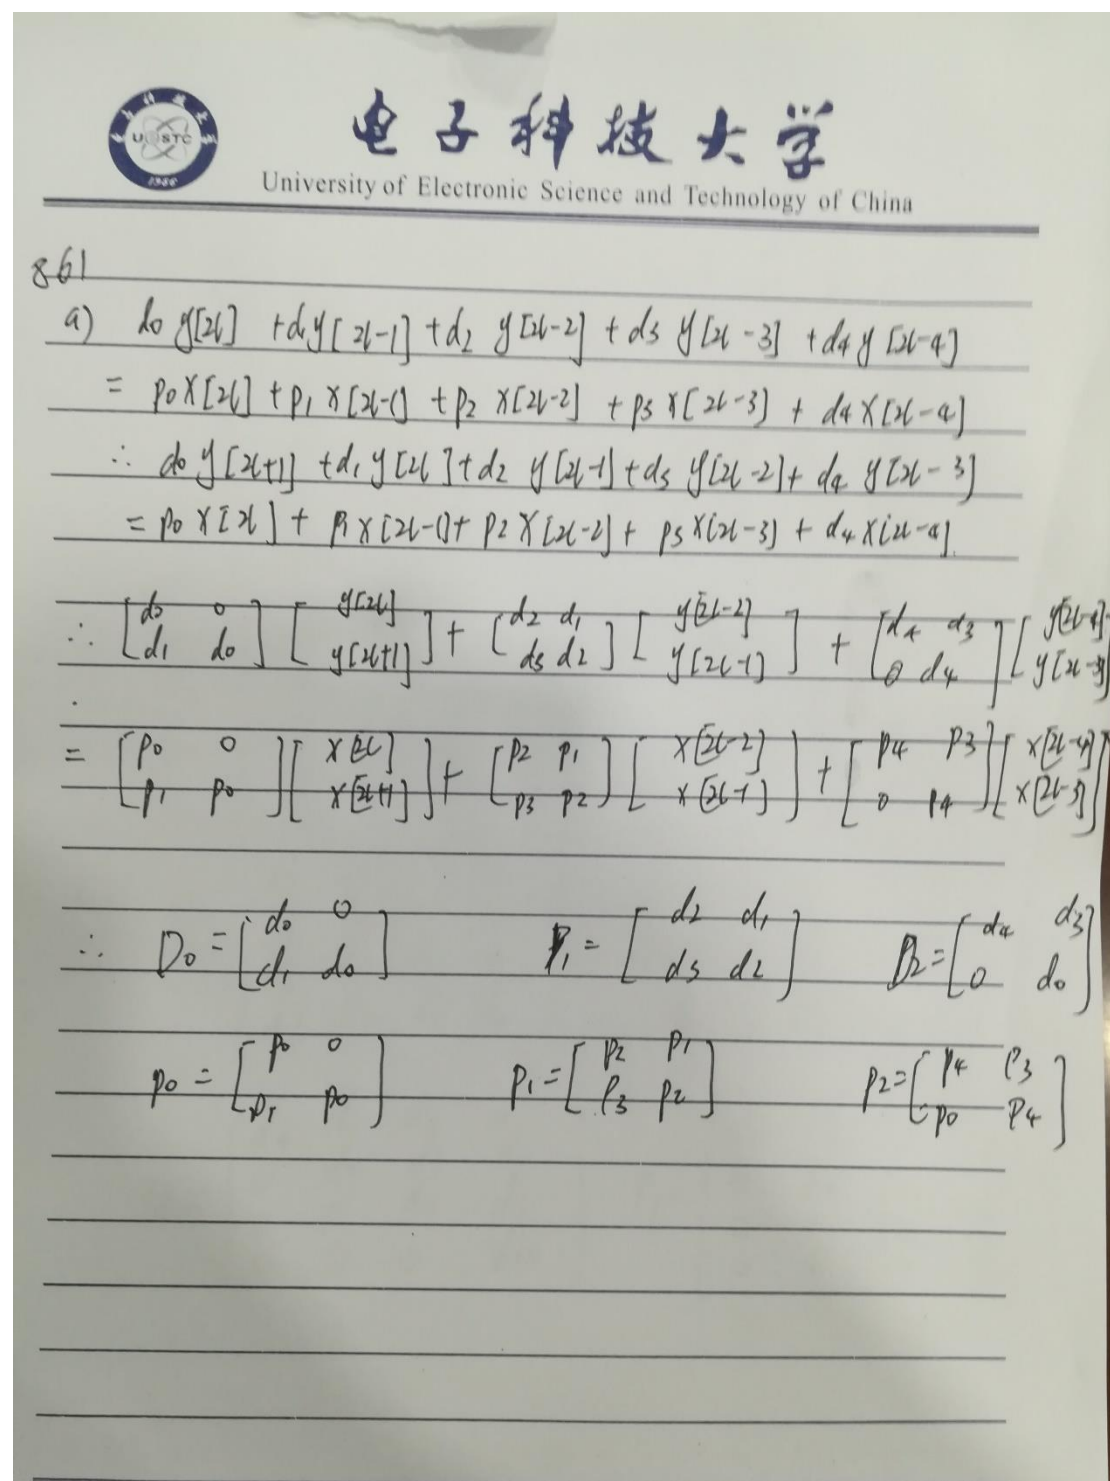 UESTC
1956
电子科技大学
University of Electronic Science and Technology of China
861
a) d0 y[2l] + d1 y[2l-1] + d2 y[2l-2] + d3 y[2l-3] + d4 y[2l-4]
= p0 x[2l] + p1 x[2l-1] + p2 x[2l-2] + p3 x[2l-3] + d4 x[2l-4]
∴ d0 y[2l+1] + d1 y[2l] + d2 y[2l-1] + d3 y[2l-2] + d4 y[2l-3]
= p0 x[2l] + p1 x[2l-1] + p2 x[2l-2] + p3 x[2l-3] + d4 x[2l-4].
∴ [d0 0; d1 d0] [y[2l]; y[2l+1]] + [d2 d1; d3 d2] [y[2l-2]; y[2l-1]] + [d4 d3; 0 d4] [y[2l-4]; y[2l-3]]
= [p0 0; p1 p0] [x[2l]; x[2l+1]] + [p2 p1; p3 p2] [x[2l-2]; x[2l-1]] + [p4 p3; 0 p4] [x[2l-4]; x[2l-3]]
∴ D0 = [d0 0; d1 d0] D1 = [d2 d1; d3 d2] D2 = [d4 d3; 0 d0]
p0 = [p0 0; p1 p0] p1 = [p2 p1; p3 p2] p2 = [p4 p3; p0 p4]